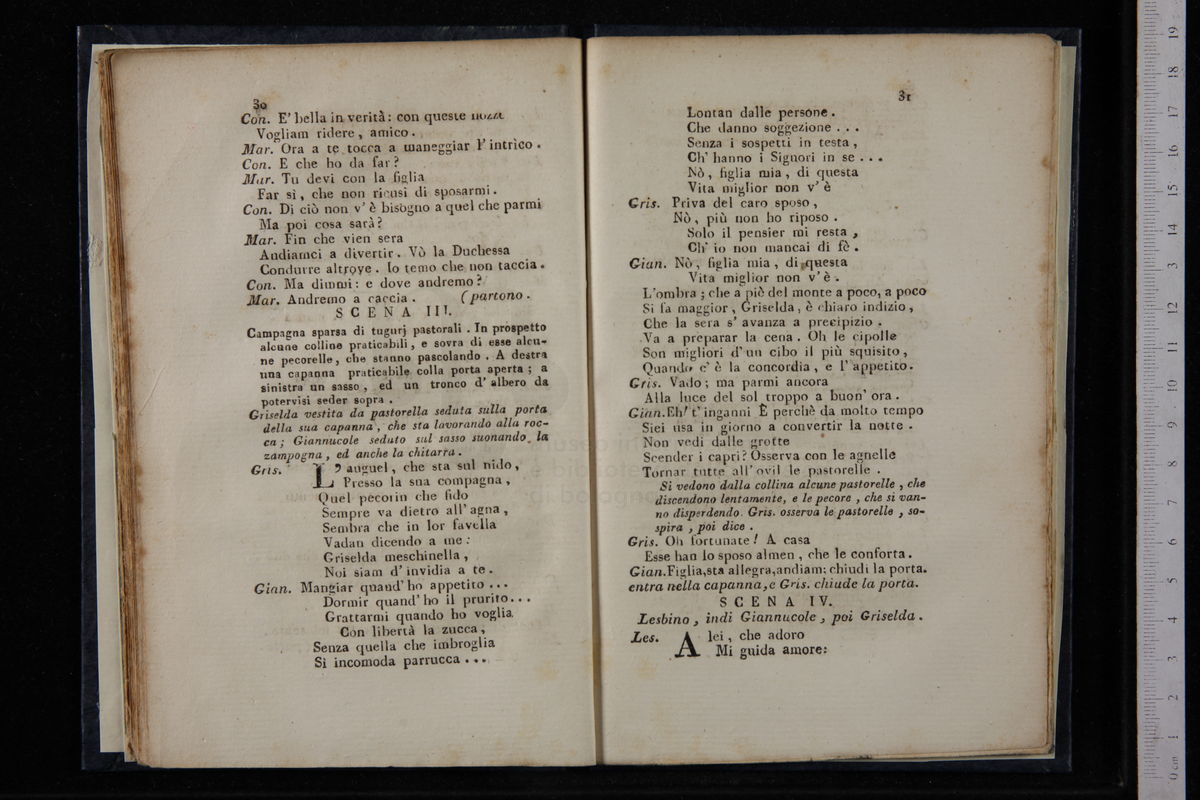 30
Con. E' bella in verità: con queste nozze
Vogliam ridere, amico.
Mar. Ora a te tocca a maneggiar l'intrico.
Con. E che ho da far?
Mar. Tu devi con la figlia
Far sì, che non ricusi di sposarmi.
Con. Di ciò non v'è bisogno a quel che parmi
Ma poi cosa sarà?
Mar. Fin che vien sera
Andiamci a divertir. Vò la Duchessa
Condurre altrove. Io temo che non taccia.
Con. Ma dimmi: e dove andremo?
Mar. Andremo a caccia. (partono.
SCENA III.
Campagna sparsa di tugurj pastorali. In prospetto
alcune colline praticabili, e sovra di esse alcu-
ne pecorelle, che stanno pascolando. A destra
una capanna praticabile colla porta aperta; a
sinistra un sasso, ed un tronco d'albero da
potervisi seder sopra.
Griselda vestita da pastorella seduta sulla porta
della sua capanna, che sta lavorando alla roc-
ca; Giannucole seduto sul sasso suonando la
zampogna, ed anche la chitarra.
Gris. L'auguel, che sta sul nido,
Presso la sua compagna,
Quel pecorin che fido
Sempre va dietro all'agna,
Sembra che in lor favella
Vadan dicendo a me:
Griselda meschinella,
Noi siam d'invidia a te.
Gian. Mangiar quand'ho appetito...
Dormir quand'ho il prurito...
Grattarmi quando ho voglia
Con libertà la zucca,
Senza quella che imbroglia
Sì incomoda parrucca....
31
Lontan dalle persone.
Che danno soggezione...
Senza i sospetti in testa,
Ch'hanno i Signori in se...
Nò, figlia mia, di questa
Vita miglior non v'è
Gris. Priva del caro sposo,
Nò, più non ho riposo.
Solo il pensier mi resta,
Ch'io non mancai di fè.
Gian. Nò, figlia mia, di questa
Vita miglior non v'è.
L'ombra; che a piè del monte a poco, a poco
Si fa maggior, Griselda, è chiaro indizio,
Che la sera s'avanza a precipizio.
Va a preparar la cena. Oh le cipolle
Son migliori d'un cibo il più squisito,
Quando c'è la concordia, e l'appetito.
Gris. Vado; ma parmi ancora
Alla luce del sol troppo a buon'ora.
Gian. Eh! t'inganni È perchè da molto tempo
Siei usa in giorno a convertir la notte.
Non vedi dalle grotte
Scender i capri? Osserva con le agnelle
Tornar tutte all'ovil le pastorelle.
Si vedono dalla collina alcune pastorelle, che
discendono lentamente, e le pecore, che si van-
no disperdendo. Gris. osserva le pastorelle, so-
spira, poi dice.
Gris. Oh fortunate! A casa
Esse han lo sposo almen, che le conforta.
Gian. Figlia, sta allegra, andiam: chiudi la porta.
entra nella capanna, e Gris. chiude la porta.
SCENA IV.
Lesbino, indi Giannucole, poi Griselda.
Les. A lei, che adoro
Mi guida amore:
0 cm 1 2 3 4 5 6 7 8 9 10 11 12 13 14 15 16 17 18 19